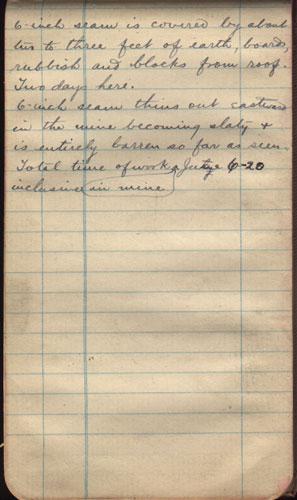 6-inch seam is covered by about
two to three feet of earth, boards,
rubbish and blocks from roof.
Two days here.
6-inch seam thins out eastward
in the mine becoming slaty +
is entirely barren so far as seen.
Total time of work July 6-20
inclusive in mine